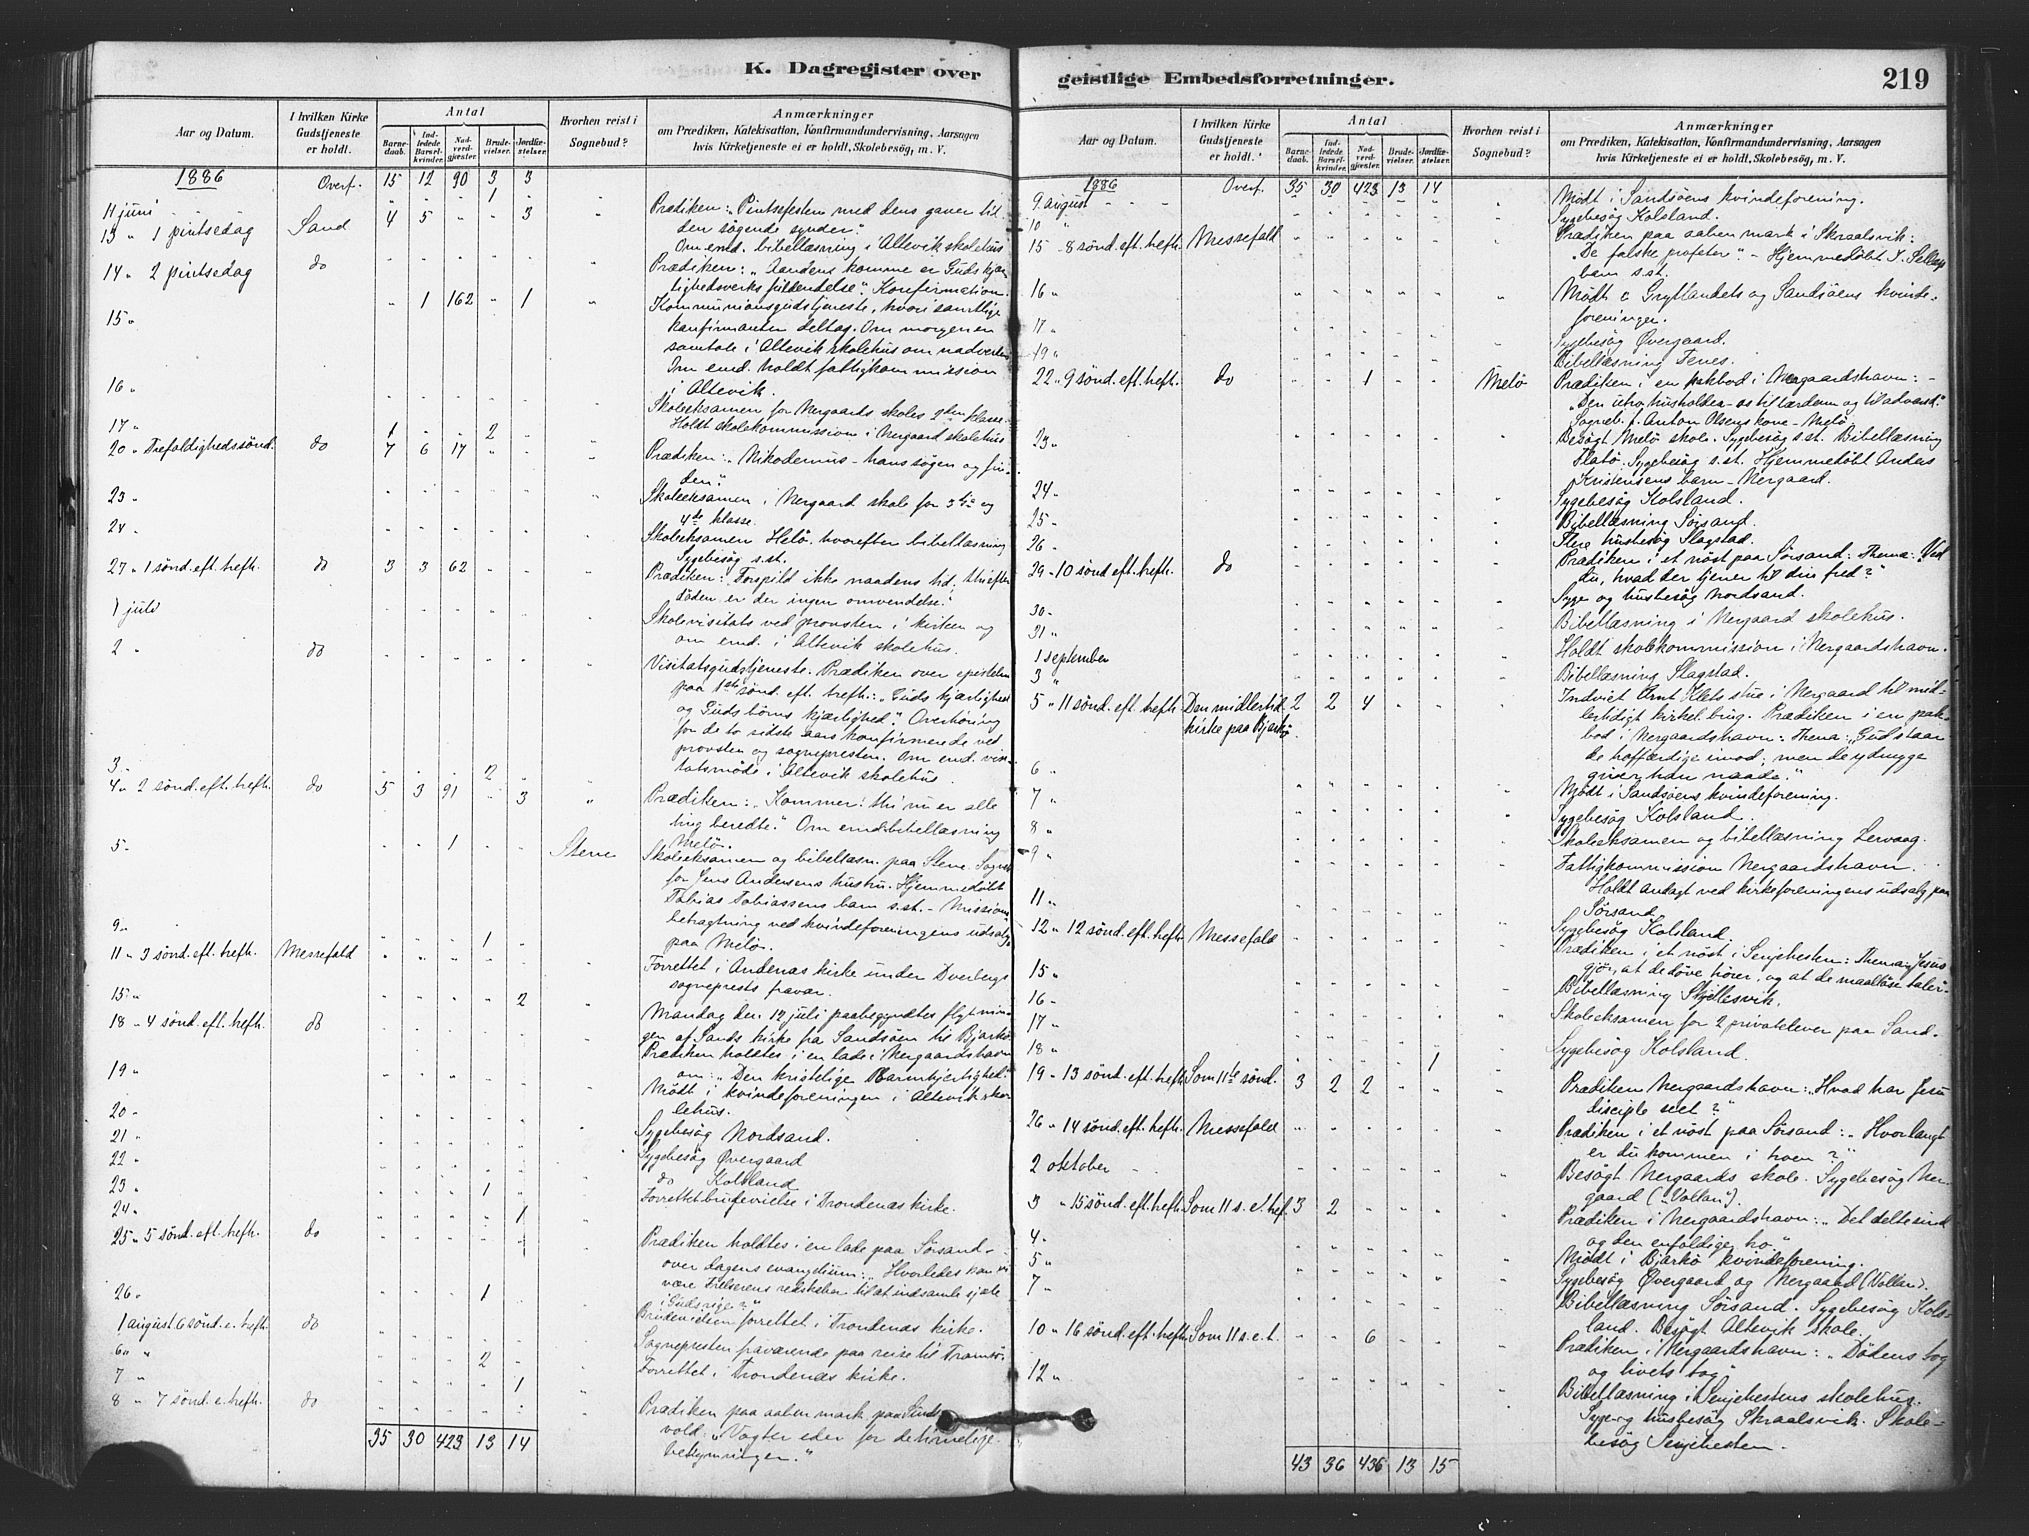 K. Dagregister over
Aar og Datum.
I hvilken Kirke Gudstjeneste er holdt.
Antal
Barnedaab.
Indledede Barselkvinder.
Nadverdgjæster.
Brudevielser.
Jordfæstelser.
Hvorhen reist i Sognebud?
Anmærkninger
om Prædiken, Katekisation, Konfirmandundervisning, Aarsagen
hvis Kirketjeneste ei er holdt, Skolebesøg, m. V.
1886 Overf. 15 12 90 3 3
11 juni 1
13 " 1 pintsedag Sand 4 5 " " 3 Prædiken: "Pintsefesten med dens gaver til
den søgende synder."
Om emd. bibellæsning i Altevik skolehus
14 " 2 pintsedag do Prædiken: "Aandens komme er Guds kjær-
lighedsverks fuldendelse." Konfirmation.
15 " " 1 162 " 1 Kommunionsgudstjeneste, hvori samtlige
konfirmanter deltog. Om morgenen
samtale i Altevik skolehus om nadverden
Om emd. holdt fattigkommission
i Altevik.
16 " Skoleeksamen for Nergaards skoles 2den klasse.
17 " 1 " " 2 Holdt skolekommission i Nergaard skolehus
20 " Trefoldighedssønd. do 7 6 17 " " Prædiken: "Nikodemus - hans søgen og fin-
den."
23 " Skoleeksamen i Nergaard skole for 3die og
4de klasse.
24 " Skoleeksamen Helø, hvorefter bibellæsning
Sygebesøg s.st.
27 " 1 sønd. eft. trefh. do 3 3 62 " " Prædiken: "Forspild ikke naadens tid, thi efter
døden er der ingen omvendelse."
1 juli Skolevisitats ved provsten i kirken og
om emd. i Altevik skolehus.
2 " do Visitatsgudstjeneste. Prædiken over epistelen
paa 1ste sønd. eft. trefh.: "Guds kjærlighed
og Guds børns kjærlighed." Overhøring
for de to sidste aars konfirmerede ved
provsten og sognepresten. Om emd. visi-
tatsmøde i Altevik skolehus.
3 " 2
4 " 2 sønd. eft. trefh. do 5 3 91 " 3 Prædiken: "Kommer! thi nu er alle
ting beredte." Om emd. bibellæsning
Melø.
5 " 1 Stene Skoleeksamen og bibellæsn. paa Stene. Sogneb.
for Jens Andersens hustru. Hjemmedøbt
Tobias Tobiassens barn s.st. - Missions-
betragtning ved kvindeforeningens udsalg
9 " paa Melø.
11 " 3 sønd. eft. trefh. Messefald 1 Forrettet i Andenas kirke under Dverbergs
sogneprests fravær.
15 " 2
18 " 4 sønd. eft. trefh. do Mandag den 12 juli paabegyndtes flytnin-
gen af Sands kirke fra Sandsøen til Bjarkø.
Prædiken holdtes i en lade i Nergaardshavn
om: "Den kristelige Barmhjertighed."
19 " Mødt i kvindeforeningen i Altevik sko-
lehus.
20 " Sygebesøg Nordsand.
21 " Sygebesøg Øvergaard
22 " do Kolsland
23 " 1 Forrettet brudevielse i Trondenas kirke.
24 " 1
25 " 5 sønd. eft. trefh. do Prædiken holdtes i en lade paa Sørsand -
over dagens evangelium: "Hvorledes kan vi
være Frelserens redskaber til at indsamle sjæle
i Guds rige?"
26 " 1 Brudevielsen forrettet i Trondenas kirke.
1 august 6 sønd. e. trefh. do Sognepresten fraværende paa reise til Tromsø.
6 " 2 Forrettet i Trondenas kirke.
7 " 1
8 " 7 sønd. e. trefh. do Prædiken paa aaben mark paa
vold: "Vogter eder for de timelige
bekymringer."
35 30 423 13 14
geistlige Embedsforretninger.
219
Aar og Datum.
I hvilken Kirke Gudstjeneste er holdt.
Antal
Barnedaab.
Indledede Barselkvinder.
Nadverdgjæster.
Brudevielser.
Jordfæstelser.
Hvorhen reist i Sognebud?
Anmærkninger
om Prædiken, Katekisation, Konfirmandundervisning, Aarsagen
hvis Kirketjeneste ei er holdt, Skolebesøg, m. V.
1886 Overf. 35 30 423 13 14
9. august Mødt i Sandsøens kvindeforening.
10 " Sygebesøg Kolsland.
15 - 8 sønd. eft. trefh. Messefald Prædiken paa aaben mark i Skraalsvik:
"De falske profeter". - Hjemmedøbt
barn s.st.
16 " Mødt i Gryllandets og Sandsøens kvinde-
foreninger.
17 " Sygebesøg Øvergaard.
19 " Bibellæsning Fenes.
22 " 9 sønd. eft. trefh. do 1 Melø Prædiken i en pakbod i Nergaardshavn: -
"Den utro husholder - os til lærdom og til advarsel."
Sogneb. f. Anton Olsens kone - Melø.
23 " Besøgt Melø skole. Sygebesøg s.st. Bibellæsning
Flatø. Sygebesøg s.st. Hjemmedøbt Anders
Kristensens barn - Nergaard.
24 " Sygebesøg Kolsland.
25 " Bibellæsning Sørsand.
26 " Flere husbesøg Slagstad.
29 - 10 sønd. eft. trefh. do Prædiken i et nøst paa Sørsand: Thema: Ved
du, hvad der tjener til din fred?"
30 " Syge og husbesøg Nordsand.
31 " Bibellæsning i Nergaard skolehus.
1 september Holdt skolekommission i Nergaardshavn.
3 " Bibellæsning Slagstad.
5 " 11 sønd. eft. trefh. Den midlertid. kirke paa Bjarkø. 2 2 4 " " Indviet Arnt Klets stue i Nergaard til mid-
lertidigt kirkel. brug. Prædiken i en pak-
bod i Nergaardshavn: Thema: "Gud staar
de hoffærdige imod, men de ydmyge
giver han naade."
6 " Mødt i Sandsøens kvindeforening.
7 " Sygebesøg Kolsland.
8 " Skoleeksamen og bibellæsning Lervaag.
9 " Fattigkommission Nergaardshavn.
11 " Holdt Andagt ved kirkeforeningens udsalg paa
Sørsand.
12 " 12 sønd. eft. trefh. Messefald Sygebesøg Kolsland
Prædiken i et nøst i Senjehesten: Thema: "Jesus
gjør, at de døve hører, og at de maalløse taler."
15 " Bibellæsning Skjellesvik.
16 " Skoleeksamen for 2 privatelever paa Sand.
17 " Sygebesøg Kolsland.
18 " 1
19 - 13 sønd. eft. trefh. Som 11te sønd. 3 2 2 " " Prædiken Nergaardshavn: "Hvad har Jesu
disciple seet?"
26 " 14 sønd. eft. trefh. Messefald Prædiken i et nøst paa Sørsand: "Hvorlangt
er du kommen i troen?"
2 oktober Besøgt Nergaards skole. Sygebesøg Ner-
gaard ("Vollen").
3 " 15 sønd. eft. trefh. Som 11 s. e. tref. 3 2 Prædiken i Nergaardshavn: "Det delte sind
og den enfoldige tro."
4 " Mødt i Bjarkø kvindeforening.
5 " Sygebesøg Øvergaard og Nergaard (Vollen).
7 " Bibellæsning Sørsand. Sygebesøg Kols-
land. Besøgt Altevik skole.
10 " 16 sønd. eft. trefh. Som 11 s. e. t. 6 Prædiken i Nergaardshavn: "Dødens tog
og livets tog".
12 " Bibellæsning i Senjehestens skolehus.
Syge og husbesøg Skraalsvik. Skole-
besøg Senjehesten.
43 36 436 13 15